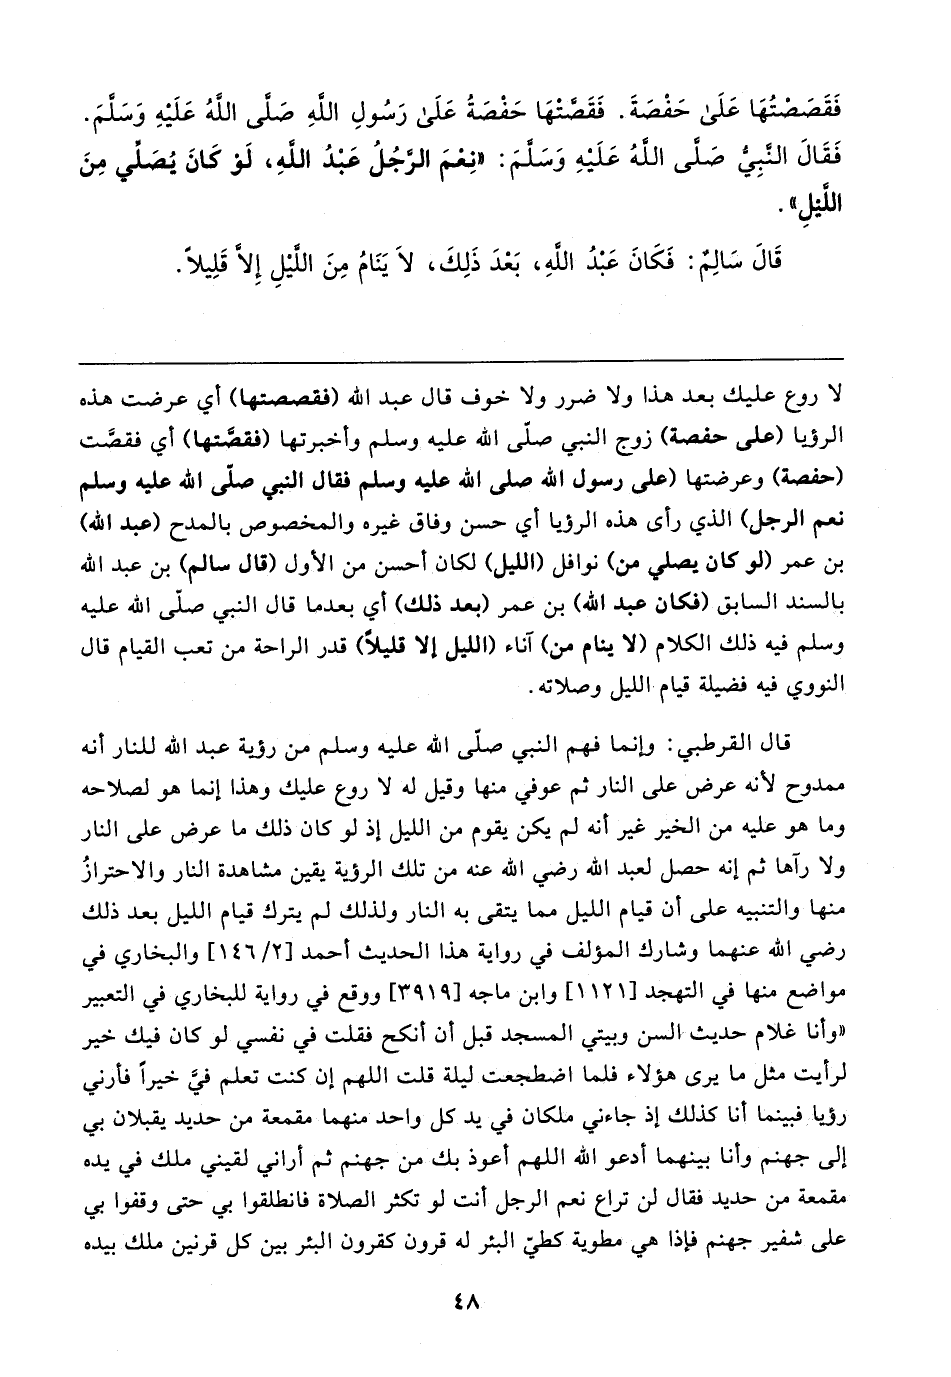 فَقَصَصْتُهَا عَلَىٰ حَفْصَةَ. فَقَصَّتْهَا حَفْصَةُ عَلَىٰ رَسُولِ اللَّهِ صَلَّى اللَّهُ عَلَيْهِ وَسَلَّمَ.
فَقَالَ النَّبِيُّ صَلَّى اللَّهُ عَلَيْهِ وَسَلَّمَ: «نِعْمَ الرَّجُلُ عَبْدُ اللَّهِ، لَوْ كَانَ يُصَلِّي مِنَ
اللَّيْلِ».
قَالَ سَالِمٌ: فَكَانَ عَبْدُ اللَّهِ، بَعْدَ ذَلِكَ، لاَ يَنَامُ مِنَ اللَّيْلِ إِلاَّ قَلِيلاً.
لا روع عليك بعد هذا ولا ضرر ولا خوف قال عبد الله (فقصصتها) أي عرضت هذه
الرؤيا (على حفصة) زوج النبي صلّى الله عليه وسلم وأخبرتها (فقصَّتها) أي فقصَّت
(حفصة) وعرضتها (على رسول الله صلى الله عليه وسلم فقال النبي صلّى الله عليه وسلم
نعم الرجل) الذي رأى هذه الرؤيا أي حسن وفاق غيره والمخصوص بالمدح (عبد الله)
بن عمر (لو كان يصلي من) نوافل (الليل) لكان أحسن من الأول (قال سالم) بن عبد الله
بالسند السابق (فكان عبد الله) بن عمر (بعد ذلك) أي بعدما قال النبي صلّى الله عليه
وسلم فيه ذلك الكلام (لا ينام من) آناء (الليل إلا قليلاً) قدر الراحة من تعب القيام قال
النووي فيه فضيلة قيام الليل وصلاته.
قال القرطبي: وإنما فهم النبي صلّى الله عليه وسلم من رؤية عبد الله للنار أنه
ممدوح لأنه عرض على النار ثم عوفي منها وقيل له لا روع عليك وهذا إنما هو لصلاحه
وما هو عليه من الخير غير أنه لم يكن يقوم من الليل إذ لو كان ذلك ما عرض على النار
ولا رآها ثم إنه حصل لعبد الله رضي الله عنه من تلك الرؤية يقين مشاهدة النار والاحترازُ
منها والتنبيه على أن قيام الليل مما يتقى به النار ولذلك لم يترك قيام الليل بعد ذلك
رضي الله عنهما وشارك المؤلف في رواية هذا الحديث أحمد [٢/ ١٤٦] والبخاري في
مواضع منها في التهجد [١١٢١] وابن ماجه [٣٩١٩] ووقع في رواية للبخاري في التعبير
«وأنا غلام حديث السن وبيتي المسجد قبل أن أنكح فقلت في نفسي لو كان فيك خير
لرأيت مثل ما يرى هؤلاء فلما اضطجعت ليلة قلت اللهم إن كنت تعلم فيَّ خيراً فأرني
رؤيا فبينما أنا كذلك إذ جاءني ملكان في يد كل واحد منهما مقمعة من حديد يقبلان بي
إلى جهنم وأنا بينهما أدعو الله اللهم أعوذ بك من جهنم ثم أراني لقيني ملك في يده
مقمعة من حديد فقال لن تراع نعم الرجل أنت لو تكثر الصلاة فانطلقوا بي حتى وقفوا بي
على شفير جهنم فإذا هي مطوية كطيّ البئر له قرون كقرون البئر بين كل قرنين ملك بيده
٤٨